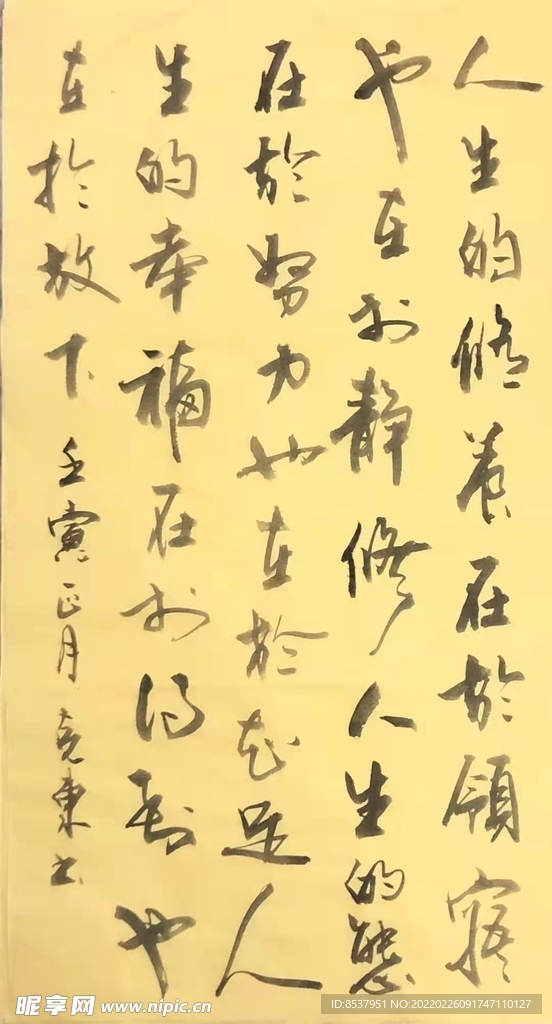 人生的修养在於領寤
也在於静修人生的態
在於努力也在於知足人
生的幸福在於得到也
在於放下 壬寅正月 東书
昵享网 www.nipic.cn
ID:8537951 NO:20220226091747110127